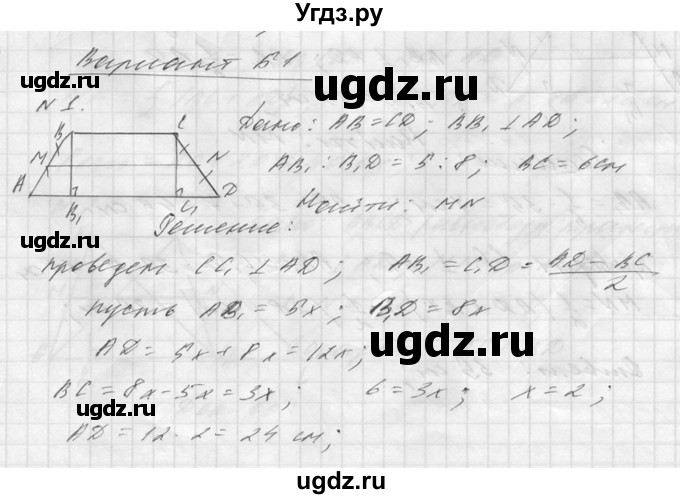 Угдз.ру
Вариант Б1
ugdz.ru
N 1.
B C
M N
A D
B₁ C₁
Дано: AB = CD; BB₁ ⊥ AD;
AB₁ : B₁D = 5 : 8; BC = 6 см
Найти: MN
Решение:
проведем CC₁ ⊥ AD; AB₁ = C₁D = (AD − BC)/2
пусть AB₁ = 5x; B₁D = 8x
AD = 4x + 8x = 12x;
BC = 8x − 5x = 3x; 6 = 3x; x = 2;
AD = 12 · 2 = 24 см;
ugdz.ru
ugdz.ru
ugdz.ru
ugdz.ru
ugdz.ru
ugdz.ru
ugdz.ru
ugdz.ru